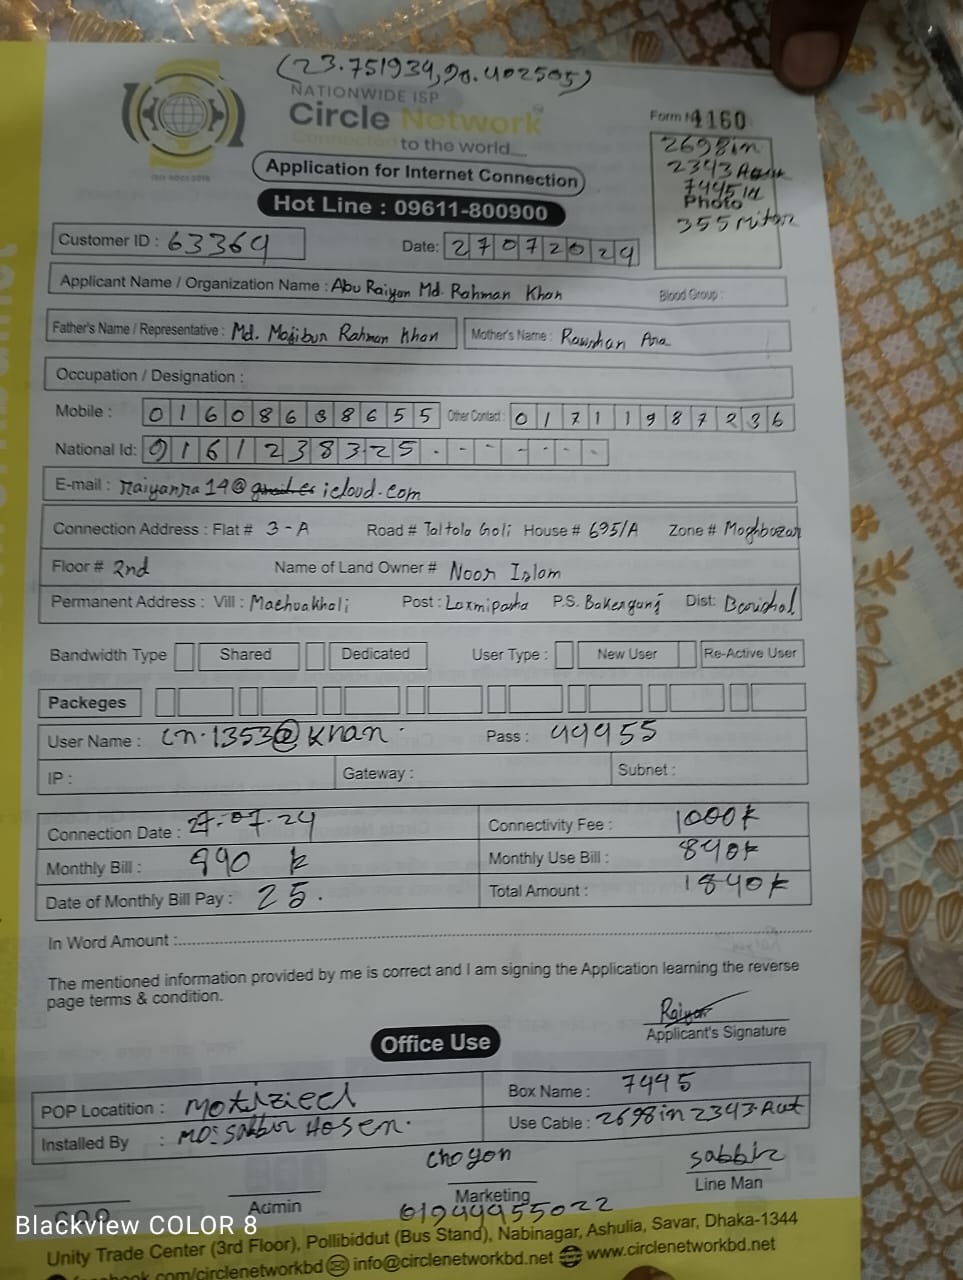 (23.751934,90.402505)
NATIONWIDE ISP
Circle Network
Connected to the world....
ISO 9001:2015
Form № 4160
Application for Internet Connection
Hot Line : 09611-800900
2698in
2343
7445
Photo
355 mitar
Customer ID : 63364
Date: 27072024
Applicant Name / Organization Name : Abu Raiyan Md. Rahman Khan Blood Group :
Father's Name / Representative : Md. Mojibur Rahman Khan Mother's Name : Rawshan Ara
Occupation / Designation :
Mobile : 01608688655 Other Contact : 01711987236
National Id: 0161238325
E-mail : raiyanra14@ icloud.com
Connection Address : Flat # 3-A Road # Taltola Goli House # 635/A Zone # Moghbazar
Floor # 2nd Name of Land Owner # Noor Islam
Permanent Address : Vill : Machuakhali Post : Laxmipasha P.S. Bakergunj Dist: Barishal
Bandwidth Type Shared Dedicated User Type : New User Re-Active User
Packeges
User Name : cn.1353@Khan Pass : 44455
IP : Gateway : Subnet :
Connection Date : 27-07-24 Connectivity Fee : 1000
Monthly Bill : 990 Monthly Use Bill : 840
Date of Monthly Bill Pay : 25. Total Amount : 1840
In Word Amount :
The mentioned information provided by me is correct and I am signing the Application learning the reverse
page terms & condition.
Raiyan
Applicant's Signature
Office Use
POP Locatition : Motizieel Box Name : 7445
Installed By : MD: Sabbir Hosen. Use Cable : 2698in 2343.Aut
Choyon sabbir
Admin Marketing Line Man
01944455022
Blackview COLOR 8
Unity Trade Center (3rd Floor), Pollibiddut (Bus Stand), Nabinagar, Ashulia, Savar, Dhaka-1344
facebook.com/circlenetworkbd info@circlenetworkbd.net www.circlenetworkbd.net